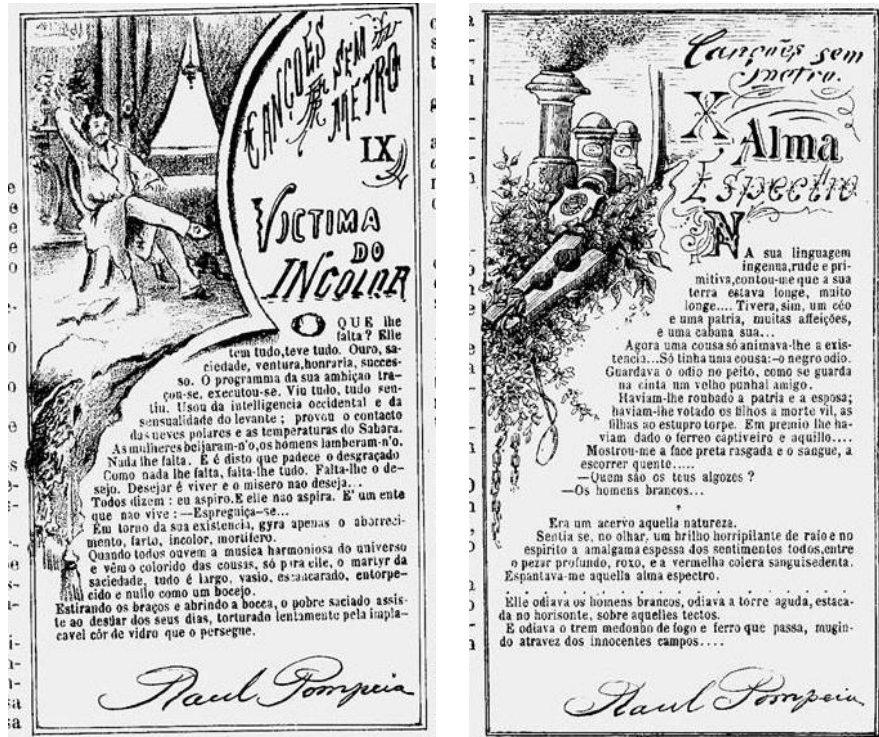 CANÇÕES
SEM
METRO
IX
VICTIMA
DO
INCOLOR
O QUE lhe
falta? Elle
tem tudo, teve tudo. Ouro, sa-
ciedade, ventura, honraria, succes-
so. O programma da sua ambição tra-
çou-se, executou-se. Viu tudo, tudo sen-
tiu. Usou da intelligencia occidental e da
sensualidade do levante; provou o contacto
das neves polares e as temperaturas do Sahara.
As mulheres beijaram-n'o, os homens lamberam-n'o.
Nada lhe falta. E é disto que padece o desgraçado
Como nada lhe falta, falta-lhe tudo. Falta-lhe o de-
sejo. Desejar é viver e o misero não deseja...
Todos dizem: eu aspiro. E elle não aspira. E' um ente
que não vive: —Espreguiça-se...
Em torno da sua existencia, gyra apenas o aborreci-
mento, farto, incolor, mortifero.
Quando todos ouvem a musica harmoniosa do universo
e vêm o colorido das cousas, só para elle, o martyr da
saciedade, tudo é largo, vasio, escancarado, entorpe-
cido e nullo como um bocejo.
Estirando os braços e abrindo a bocca, o pobre saciado assis-
te ao desfiar dos seus dias, torturado lentamente pela impla-
cavel côr de vidro que o persegue.
Raul Pompeia
Canções sem
metro.
X
Alma
Espectro
NA sua linguagem
ingenua, rude e pri-
mitiva, contou-me que a sua
terra estava longe, muito
longe.... Tivera, sim, um céo
e uma patria, muitas affeições,
e uma cabana sua...
Agora uma cousa só animava-lhe a exis-
tencia... Só tinha uma cousa:—o negro odio.
Guardava o odio no peito, como se guarda
na cinta um velho punhal amigo.
Haviam-lhe roubado a patria e a esposa;
haviam-lhe votado os filhos a morte vil, as
filhas ao estupro torpe. Em premio lhe ha-
viam dado o ferreo captiveiro e aquillo....
Mostrou-me a face preta rasgada e o sangue, a
escorrer quente.....
—Quem são os teus algozes?
—Os homens brancos...
*
Era um acervo aquella natureza.
Sentia se, no olhar, um brilho horripilante de raio e no
espirito a amalgama espessa dos sentimentos todos, entre
o pezar profundo, roxo, e a vermelha colera sanguisedenta.
Espantava-me aquella alma espectro.
Elle odiava os homens brancos, odiava a torre aguda, estaca-
da no horisonte, sobre aquelles tectos.
E odiava o trem medonho de fogo e ferro que passa, mugin-
do atravez dos innocentes campos....
Raul Pompeia